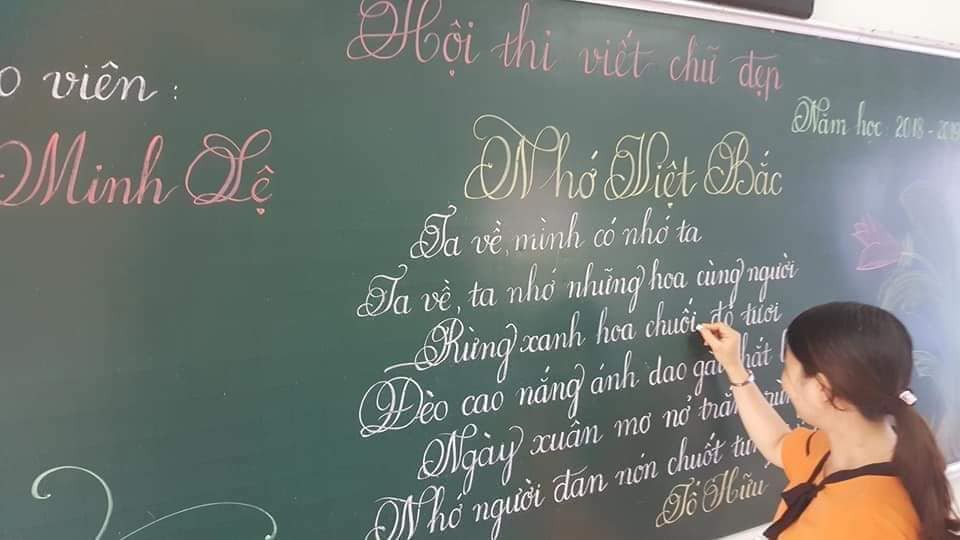 Hội thi viết chữ đẹp
viên :
Minh Lệ
Năm học: 2018 - 2019
Nhớ Việt Bắc
Ta về, mình có nhớ ta
Ta về, ta nhớ những hoa cùng người
Rừng xanh hoa chuối đỏ tươi
Đèo cao nắng ánh dao gài
Ngày xuân mơ nở
Nhớ người đan nón chuốt
Tố Hữu